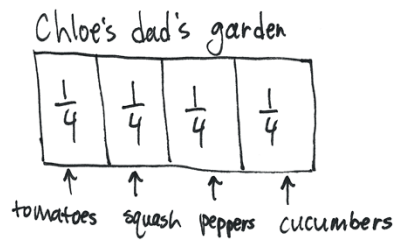 Chloe's dad's garden
1/4 1/4 1/4 1/4
tomatoes squash peppers cucumbers